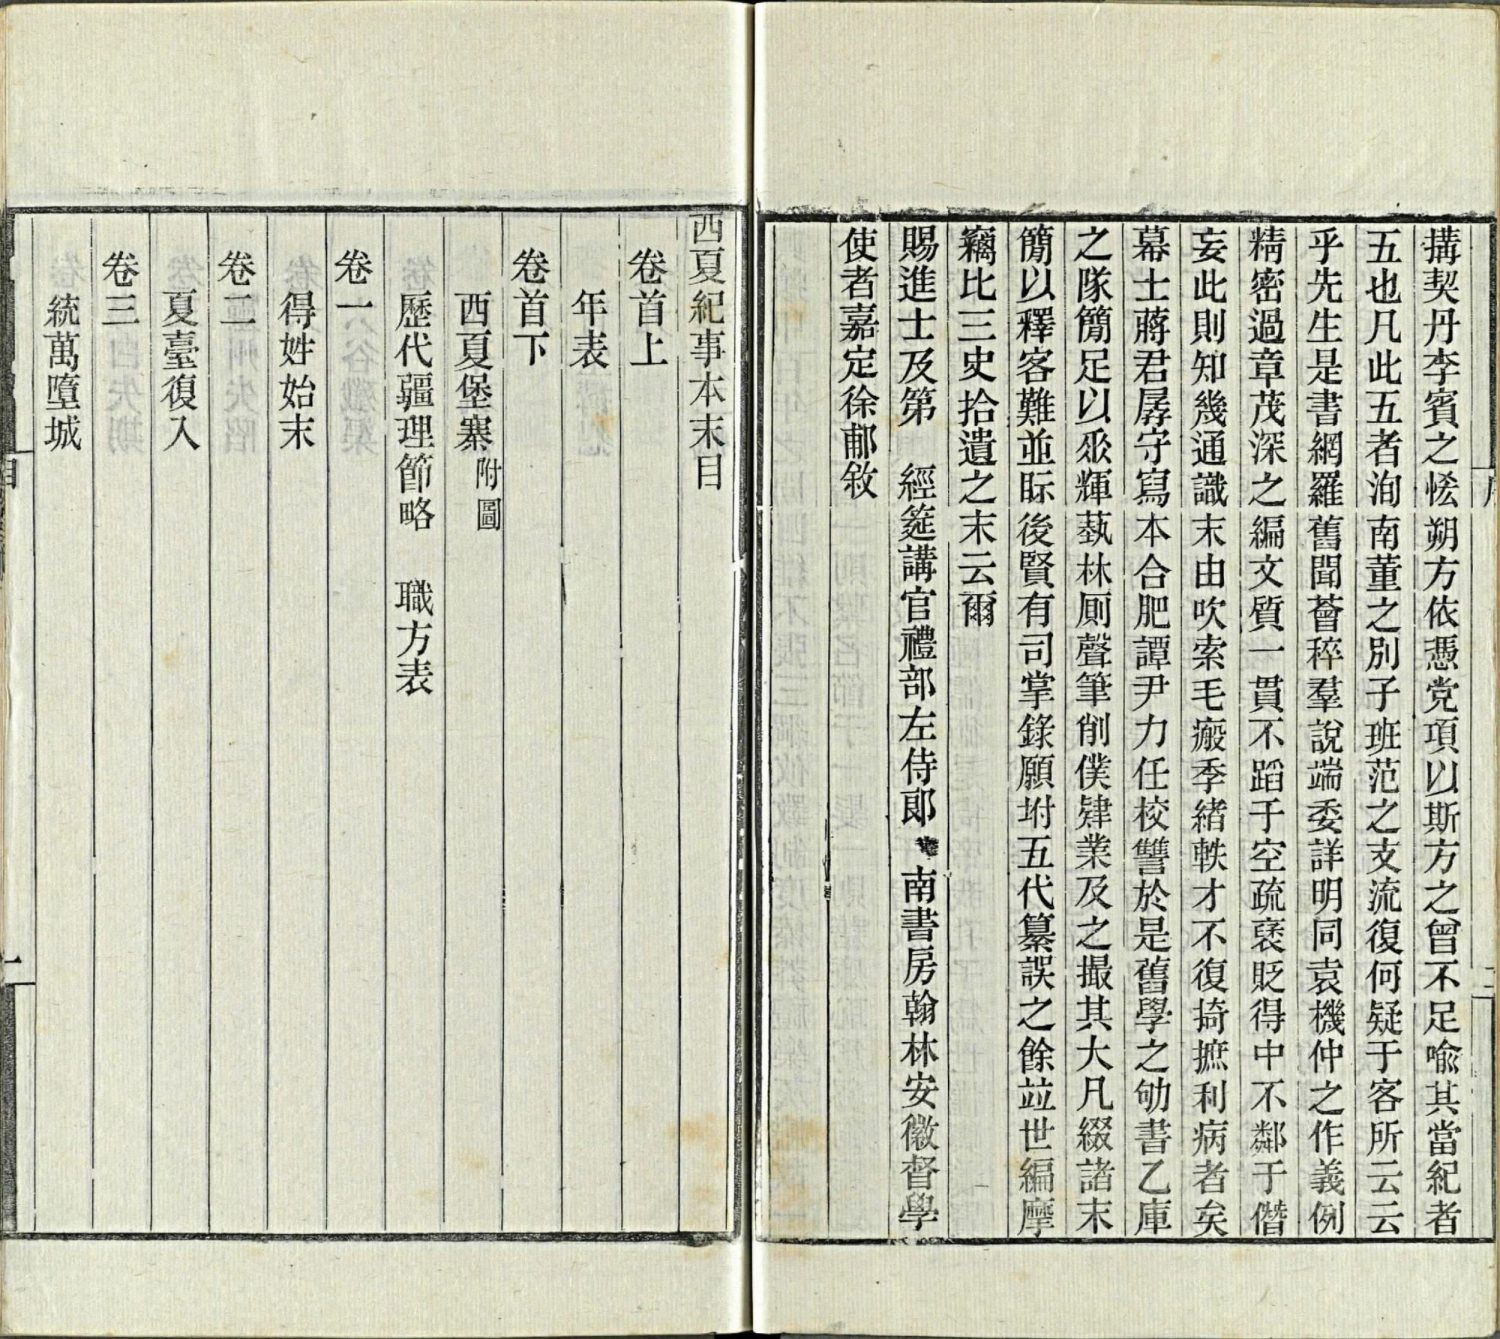 搆契丹李賓之恡朔方依憑党項以斯方之曾不足喻其當紀者
五也凡此五者洵南董之別子班范之支流復何疑于客所云云
乎先生是書網羅舊聞薈稡羣說端委詳明同袁機仲之作義例
精密過章茂深之編文質一貫不蹈于空疏襃貶得中不鄰于僭
妄此則知幾通識末由吹索毛瘢季緒軼才不復掎摭利病者矣
幕士蔣君孱守寫本合肥譚尹力任校讐於是舊學之劬書乙庫
之隊簡足以烝輝蓺林厠聲筆削僕肄業及之撮其大凡綴諸末
簡以釋客難並眎後賢有司掌錄願坿五代纂誤之餘竝世編摩
竊比三史拾遺之末云爾
賜進士及第 經筵講官禮部左侍郞 南書房翰林安徽督學
使者嘉定徐郙敘
西夏紀事本末目
卷首上
年表
卷首下
西夏堡寨 附圖
歷代疆理節略 職方表
卷一
得姓始末
卷二
夏臺復入
卷三
統萬墮城